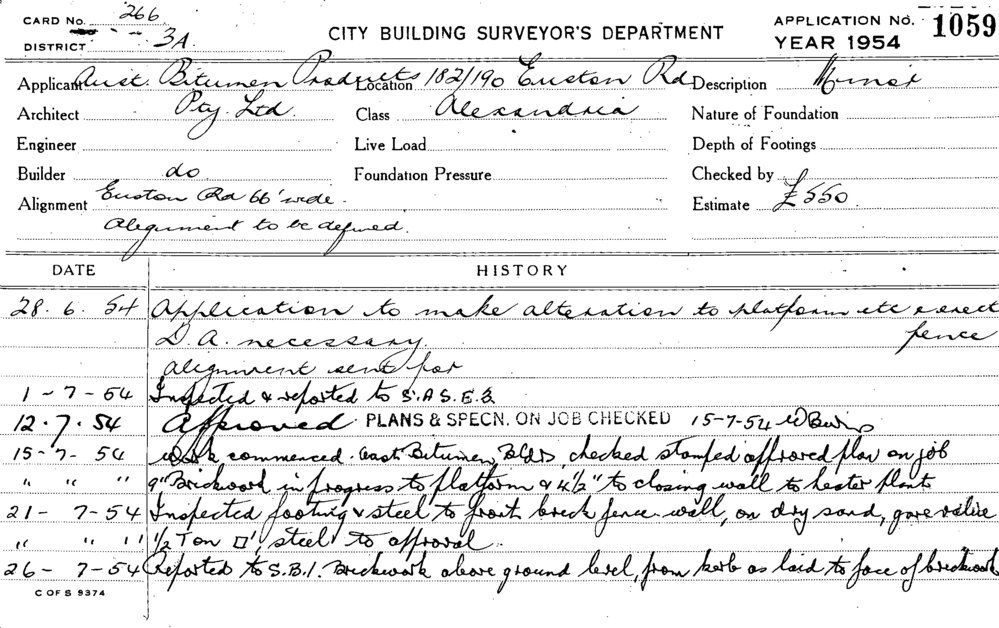 CARD No. 266
DISTRICT 3A
CITY BUILDING SURVEYOR'S DEPARTMENT
APPLICATION No. 1059
YEAR 1954
Applicant Aust. Bitumen Products Location 182/190 Euston Rd Description Minor
Architect Pty Ltd. Class Alexandria Nature of Foundation
Engineer Live Load Depth of Footings
Builder do Foundation Pressure Checked by
Alignment Euston Rd 66' wide. Estimate £550
Alignment to be defined.
DATE HISTORY
28. 6. 54 Application to make alteration to platform etc & erect
D.A. necessary. fence
Alignment sent for
1-7-54 Inspected & reported to S.A.S.E.B.
12.7.54 Approved PLANS & SPECN. ON JOB CHECKED 15-7-54
15-7-54 Work commenced. East Bitumen Bldrs, checked stamped approved plan on job
" " " 9" Brickwork in progress to platform & 4½" to closing wall to heater plant
21-7-54 Inspected footing & steel to front brick fence wall, on dry sand, gave value
" " " ½ Ton □', steel to approval.
26-7-54 Reported to S.B.I. Brickwork above ground level, from kerb as laid to face of brickwork
C OF S 9374